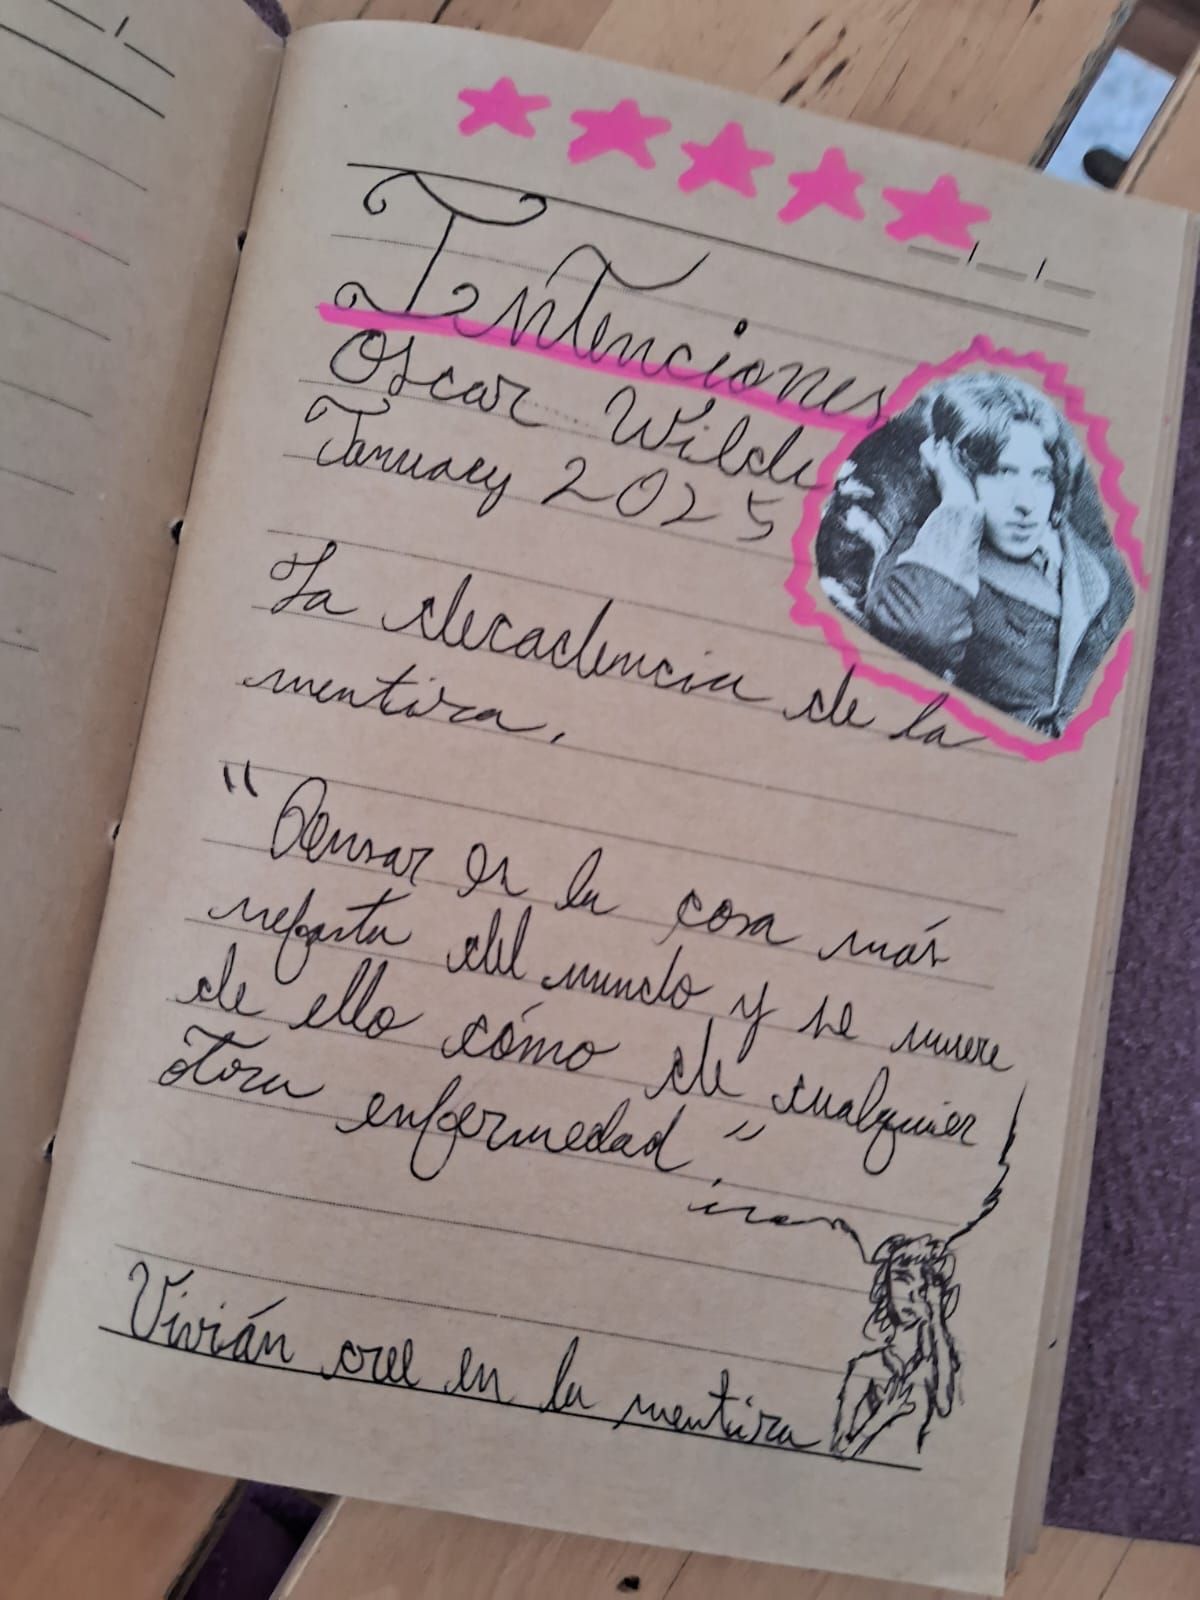 Intenciones
Oscar Wilde
January 2025
La decadencia de la
mentira.
"Pensar es la cosa más
nefasta del mundo y se muere
de ello cómo de cualquier
otra enfermedad."
Vivián cree en la mentira